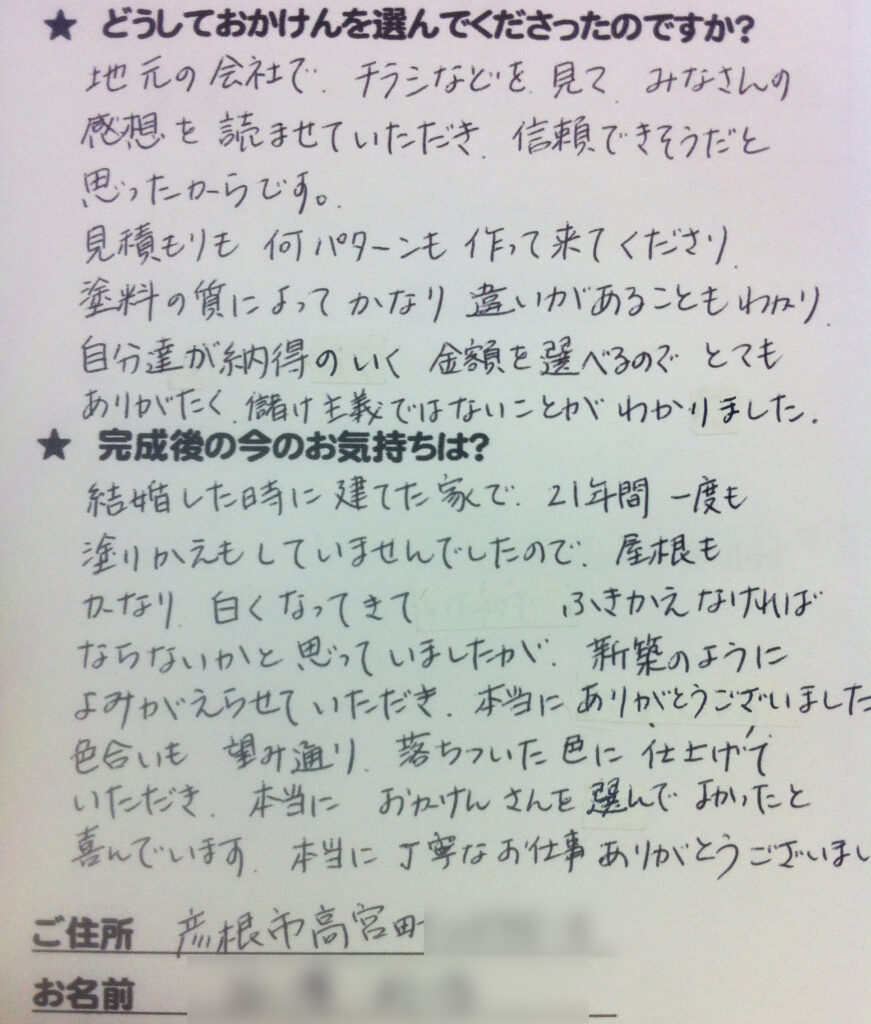 ★ どうしておかけんを選んでくださったのですか？
地元の会社で、チラシなどを見て、みなさんの
感想を読ませていただき、信頼できそうだと
思ったからです。
見積もりも何パターンも作って来てくださり、
塗料の質によってかなり違いがあることもわかり、
自分達が納得のいく金額を選べるのでとても
ありがたく、儲け主義ではないことがわかりました。
★ 完成後の今のお気持ちは？
結婚した時に建てた家で、21年間一度も
塗りかえもしていませんでしたので、屋根も
かなり白くなってきて ふきかえなければ
ならないかと思っていましたが、新築のように
よみがえらせていただき、本当にありがとうございました
色合いも望み通り、落ちついた色に仕上げて
いただき、本当におかけんさんを選んでよかったと
喜んでいます。本当に丁寧なお仕事ありがとうございまし
ご住所 彦根市高宮町
お名前